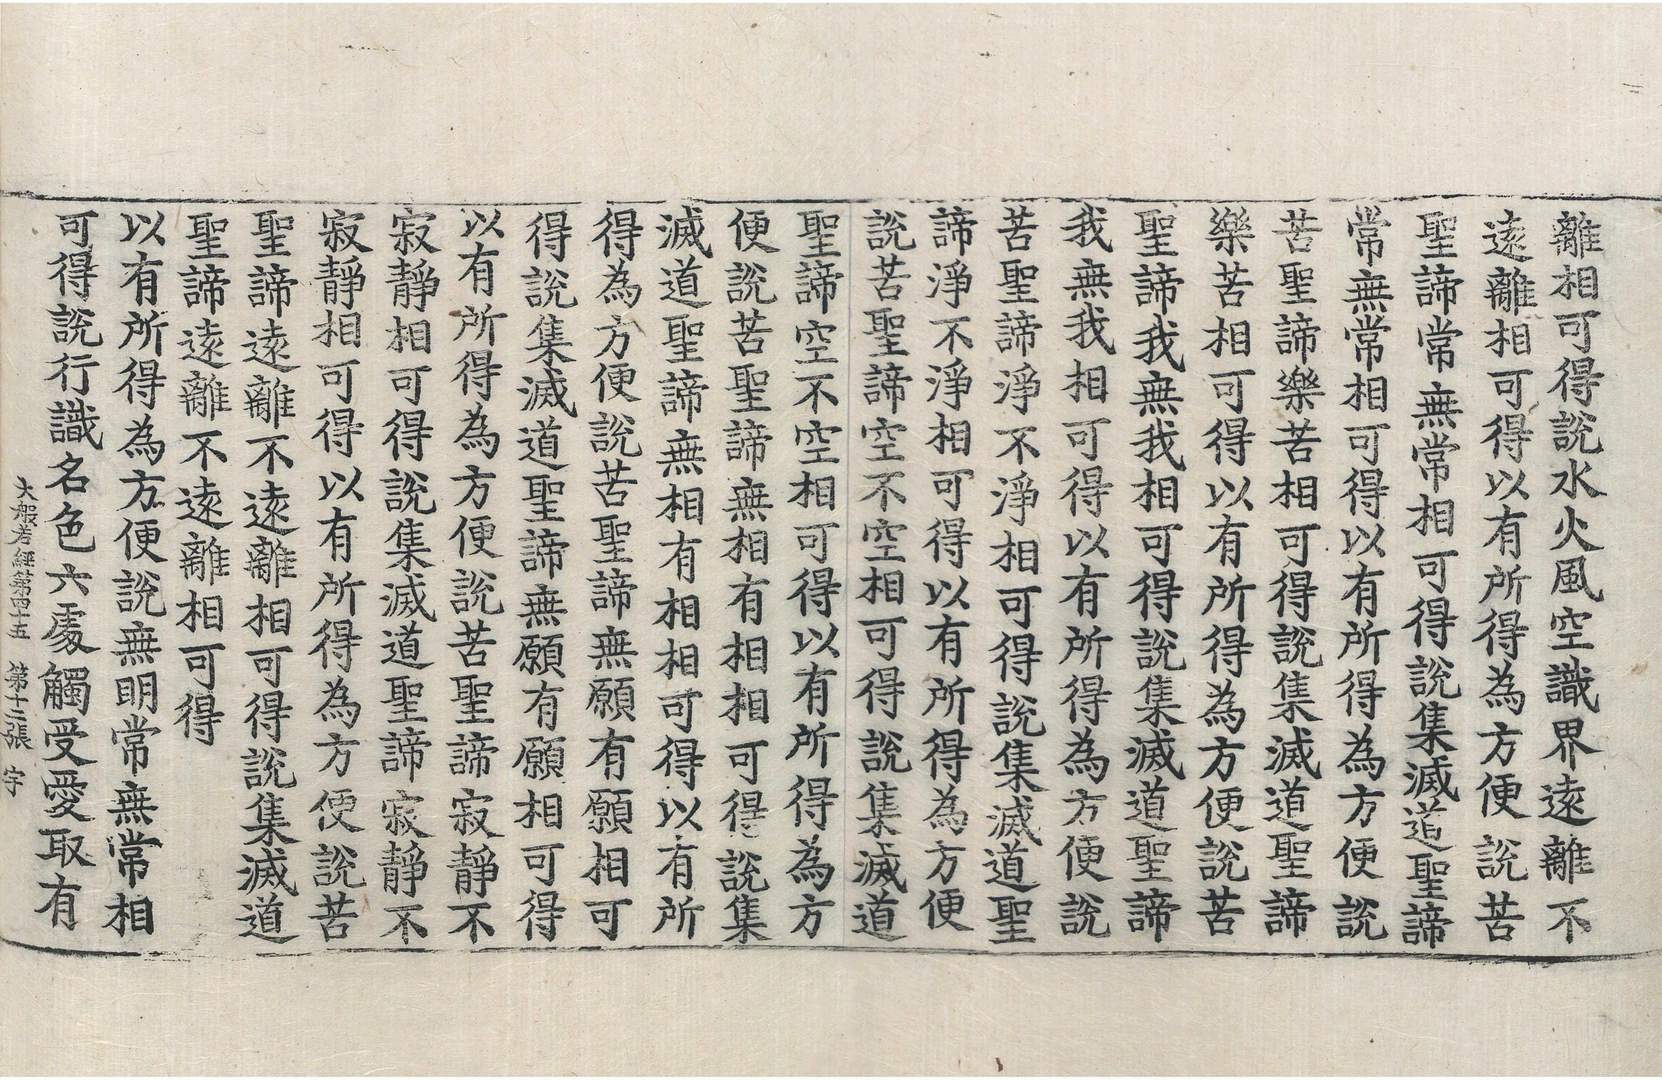 離相可得說水火風空識界遠離不
遠離相可得以有所得為方便說苦
聖諦常無常相可得說集滅道聖諦
常無常相可得以有所得為方便說
苦聖諦樂苦相可得說集滅道聖諦
樂苦相可得以有所得為方便說苦
聖諦我無我相可得說集滅道聖諦
我無我相可得以有所得為方便說
苦聖諦淨不淨相可得說集滅道聖
諦淨不淨相可得以有所得為方便
說苦聖諦空不空相可得說集滅道
聖諦空不空相可得以有所得為方
便說苦聖諦無相有相相可得說集
滅道聖諦無相有相相可得以有所
得為方便說苦聖諦無願有願相可
得說集滅道聖諦無願有願相可得
以有所得為方便說苦聖諦寂靜不
寂靜相可得說集滅道聖諦寂靜不
寂靜相可得以有所得為方便說苦
聖諦遠離不遠離相可得說集滅道
聖諦遠離不遠離相可得
以有所得為方便說無明常無常相
可得說行識名色六處觸受愛取有
大般若經第四十五　第十二張　宇